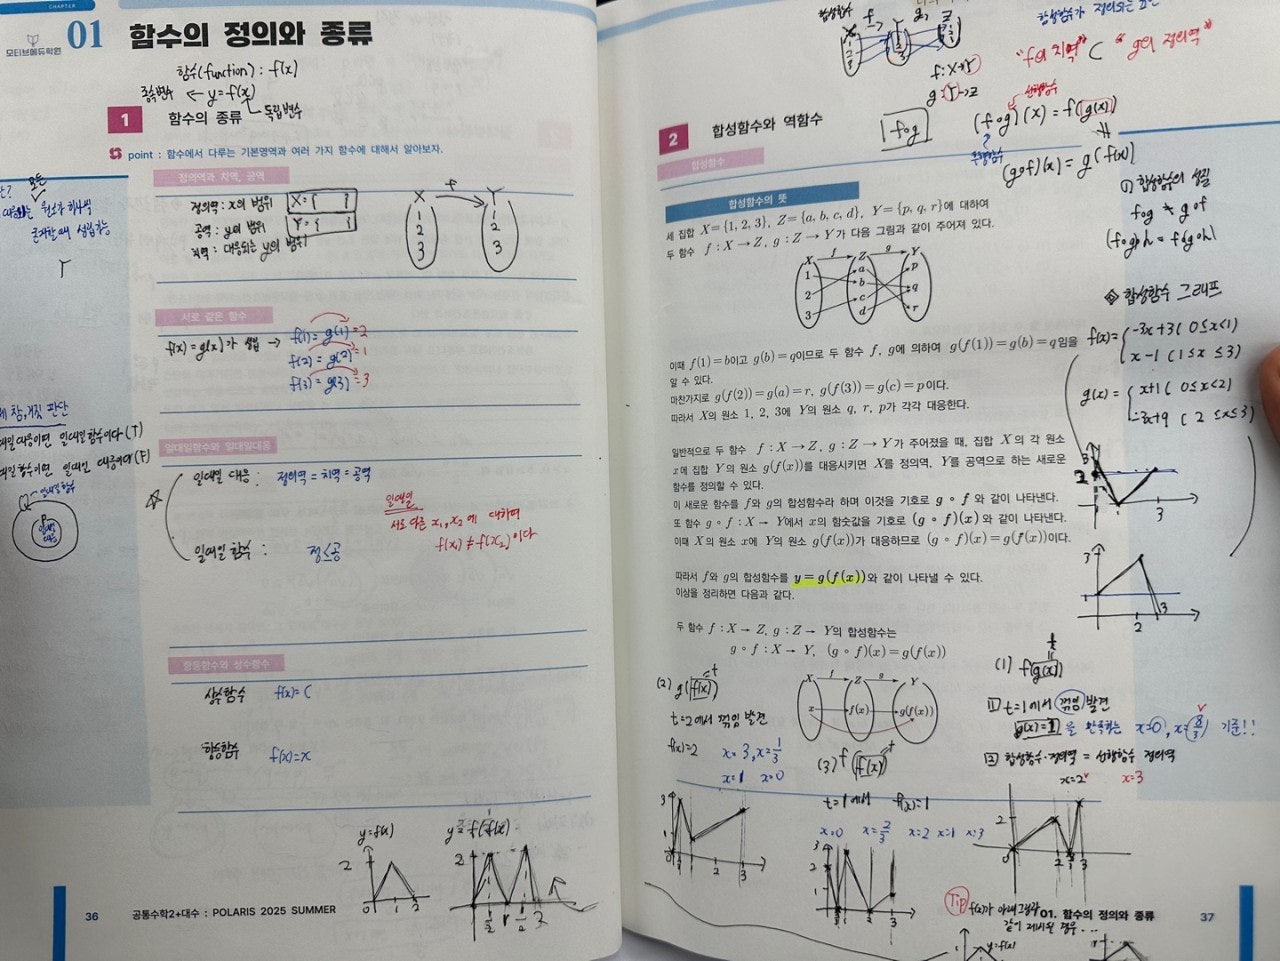 CHAPTER
01 함수의 정의와 종류
모티브에듀학원
함수(function) : f(x)
종속변수 ← y = f(x)
독립변수
1 함수의 종류
point : 함수에서 다루는 기본영역과 여러 가지 함수에 대해서 알아보자.
정의역과 치역, 공역
정의역 : x의 범위 X = { }
공역 : y의 범위 Y = { }
치역 : 대응되는 y의 범위
X f Y
1 1
2 2
3 3
모든
Y
서로 같은 함수
f(x) = g(x)가 성립 → f(1) = g(1) = 2
f(2) = g(2) = 1
f(3) = g(3) = 3
참, 거짓 판단
일대일대응이면 일대일함수이다 (T)
일대일함수이면 일대일 대응이다 (F)
일대일함수
일대일 대응
일대일함수와 일대일대응
일대일 대응 : 정의역 = 치역 = 공역
일대일
서로 다른 x₁, x₂에 대하여
f(x₁) ≠ f(x₂)이다
일대일 함수 : 정≤공
항등함수와 상수함수
상수함수 f(x) = C
항등함수 f(x) = x
y=f(x)
2
0 1 2
2
36 공통수학2+대수 : POLARIS 2025 SUMMER
합성함수
X f Y g Z
f : X→Y
g : Y→Z
"f의 치역" ⊂ "g의 정의역"
fog
선행함수
(fog)(x) = f(g(x))
후행함수
(gof)(x) = g(f(x))
2 합성함수와 역함수
합성함수
합성함수의 뜻
세 집합 X = {1, 2, 3}, Z = {a, b, c, d}, Y = {p, q, r}에 대하여
두 함수 f : X → Z, g : Z → Y가 다음 그림과 같이 주어져 있다.
X f Z g Y
1 a p
2 b q
3 c r
d
이때 f(1) = b이고 g(b) = q이므로 두 함수 f, g에 의하여 g(f(1)) = g(b) = q임을
알 수 있다.
마찬가지로 g(f(2)) = g(a) = r, g(f(3)) = g(c) = p이다.
따라서 X의 원소 1, 2, 3에 Y의 원소 q, r, p가 각각 대응한다.
일반적으로 두 함수 f : X → Z, g : Z → Y가 주어졌을 때, 집합 X의 각 원소
x에 집합 Y의 원소 g(f(x))를 대응시키면 X를 정의역, Y를 공역으로 하는 새로운
함수를 정의할 수 있다.
이 새로운 함수를 f와 g의 합성함수라 하며 이것을 기호로 g ∘ f 와 같이 나타낸다.
또 함수 g ∘ f : X → Y에서 x의 함숫값을 기호로 (g ∘ f)(x)와 같이 나타낸다.
이때 X의 원소 x에 Y의 원소 g(f(x))가 대응하므로 (g ∘ f)(x) = g(f(x))이다.
따라서 f와 g의 합성함수를 y = g(f(x))와 같이 나타낼 수 있다.
이상을 정리하면 다음과 같다.
두 함수 f : X → Z, g : Z → Y의 합성함수는
g ∘ f : X → Y, (g ∘ f)(x) = g(f(x))
X f Z g Y
x f(x) g(f(x))
합성함수의 성질
fog ≠ gof
(fog)oh = fo(goh)
합성함수 그래프
f(x) = { -3x+3 (0≤x<1)
x-1 (1≤x≤3)
g(x) = { x+1 (0≤x<2)
-3x+9 (2≤x≤3)
3
2
1 3
3
1
2 3
(1) f(g(x)) t
1 t=1에서 꺾임 발견
g(x)=1 을 만족하는 x=0, x=8/3 기준!!
2 합성함수 정의역 = 선행함수 정의역
x=2 x=3
(2) g(f(x)) t
t=2에서 꺾임 발견
f(x)=2 x=3, x=1/3
x=1 x=0
(3) f(f(x)) t
t=1에서 f(x)=1
x=0 x=2/3 x=2 x=1 x=3
Tip f(x)가 아래 그림과
같이 제시된 경우...
y=f(x)
01. 함수의 정의와 종류 37